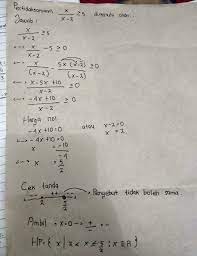 Pertidaksamaan x/x-2 ≥ 5 dipenuhi oleh..
Jawab :
x/x-2 ≥ 5
<-> x/x-2 - 5 ≥ 0
<-> x/(x-2) - 5x(x-2)/(x-2) ≥ 0
<-> x-5x+10/x-2 ≥ 0
<-> -4x+10/x-2 ≥ 0
Harga nol
-4x+10=0 atau x-2=0
<-> -4x+10=0 x=2
x = -10/-4
<-> x = 5/2
Cek tanda
Penyebut tidak boleh sama
2 5/2
Ambil x = 0 ->
HP: { x | 2 < x ≤ 5/2 ; x ∈ R }